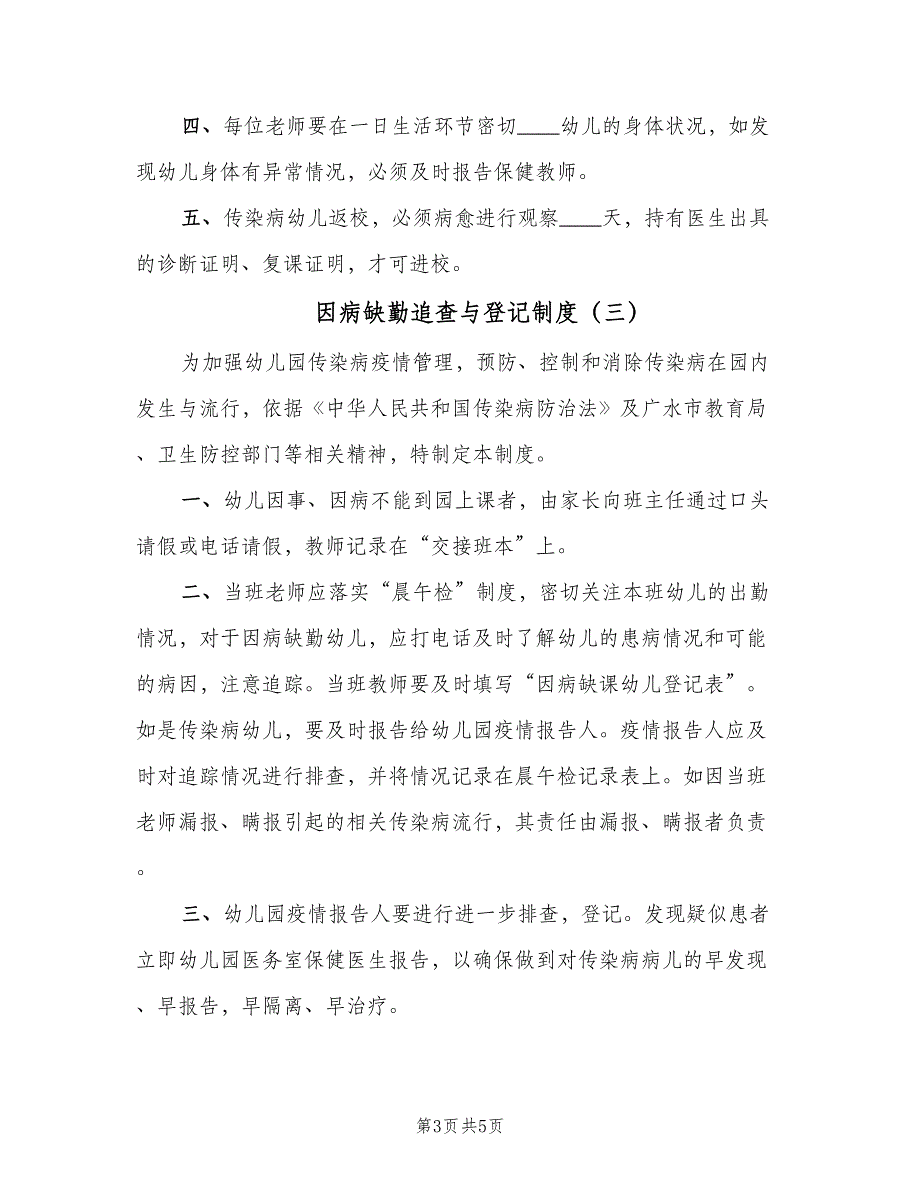 四、每位老师要在一日生活环节密切____幼儿的身体状况，如发
现幼儿身体有异常情况，必须及时报告保健教师。
五、传染病幼儿返校，必须病愈进行观察____天，持有医生出具
的诊断证明、复课证明，才可进校。
因病缺勤追查与登记制度（三）
为加强幼儿园传染病疫情管理，预防、控制和消除传染病在园内
发生与流行，依据《中华人民共和国传染病防治法》及广水市教育局
、卫生防控部门等相关精神，特制定本制度。
一、幼儿因事、因病不能到园上课者，由家长向班主任通过口头
请假或电话请假，教师记录在“交接班本”上。
二、当班老师应落实“晨午检”制度，密切关注本班幼儿的出勤
情况，对于因病缺勤幼儿，应打电话及时了解幼儿的患病情况和可能
的病因，注意追踪。当班教师要及时填写“因病缺课幼儿登记表”。
如是传染病幼儿，要及时报告给幼儿园疫情报告人。疫情报告人应及
时对追踪情况进行排查，并将情况记录在晨午检记录表上。如因当班
老师漏报、瞒报引起的相关传染病流行，其责任由漏报、瞒报者负责
。
三、幼儿园疫情报告人要进行进一步排查，登记。发现疑似患者
立即幼儿园医务室保健医生报告，以确保做到对传染病病儿的早发现
、早报告，早隔离、早治疗。
第3页共5页